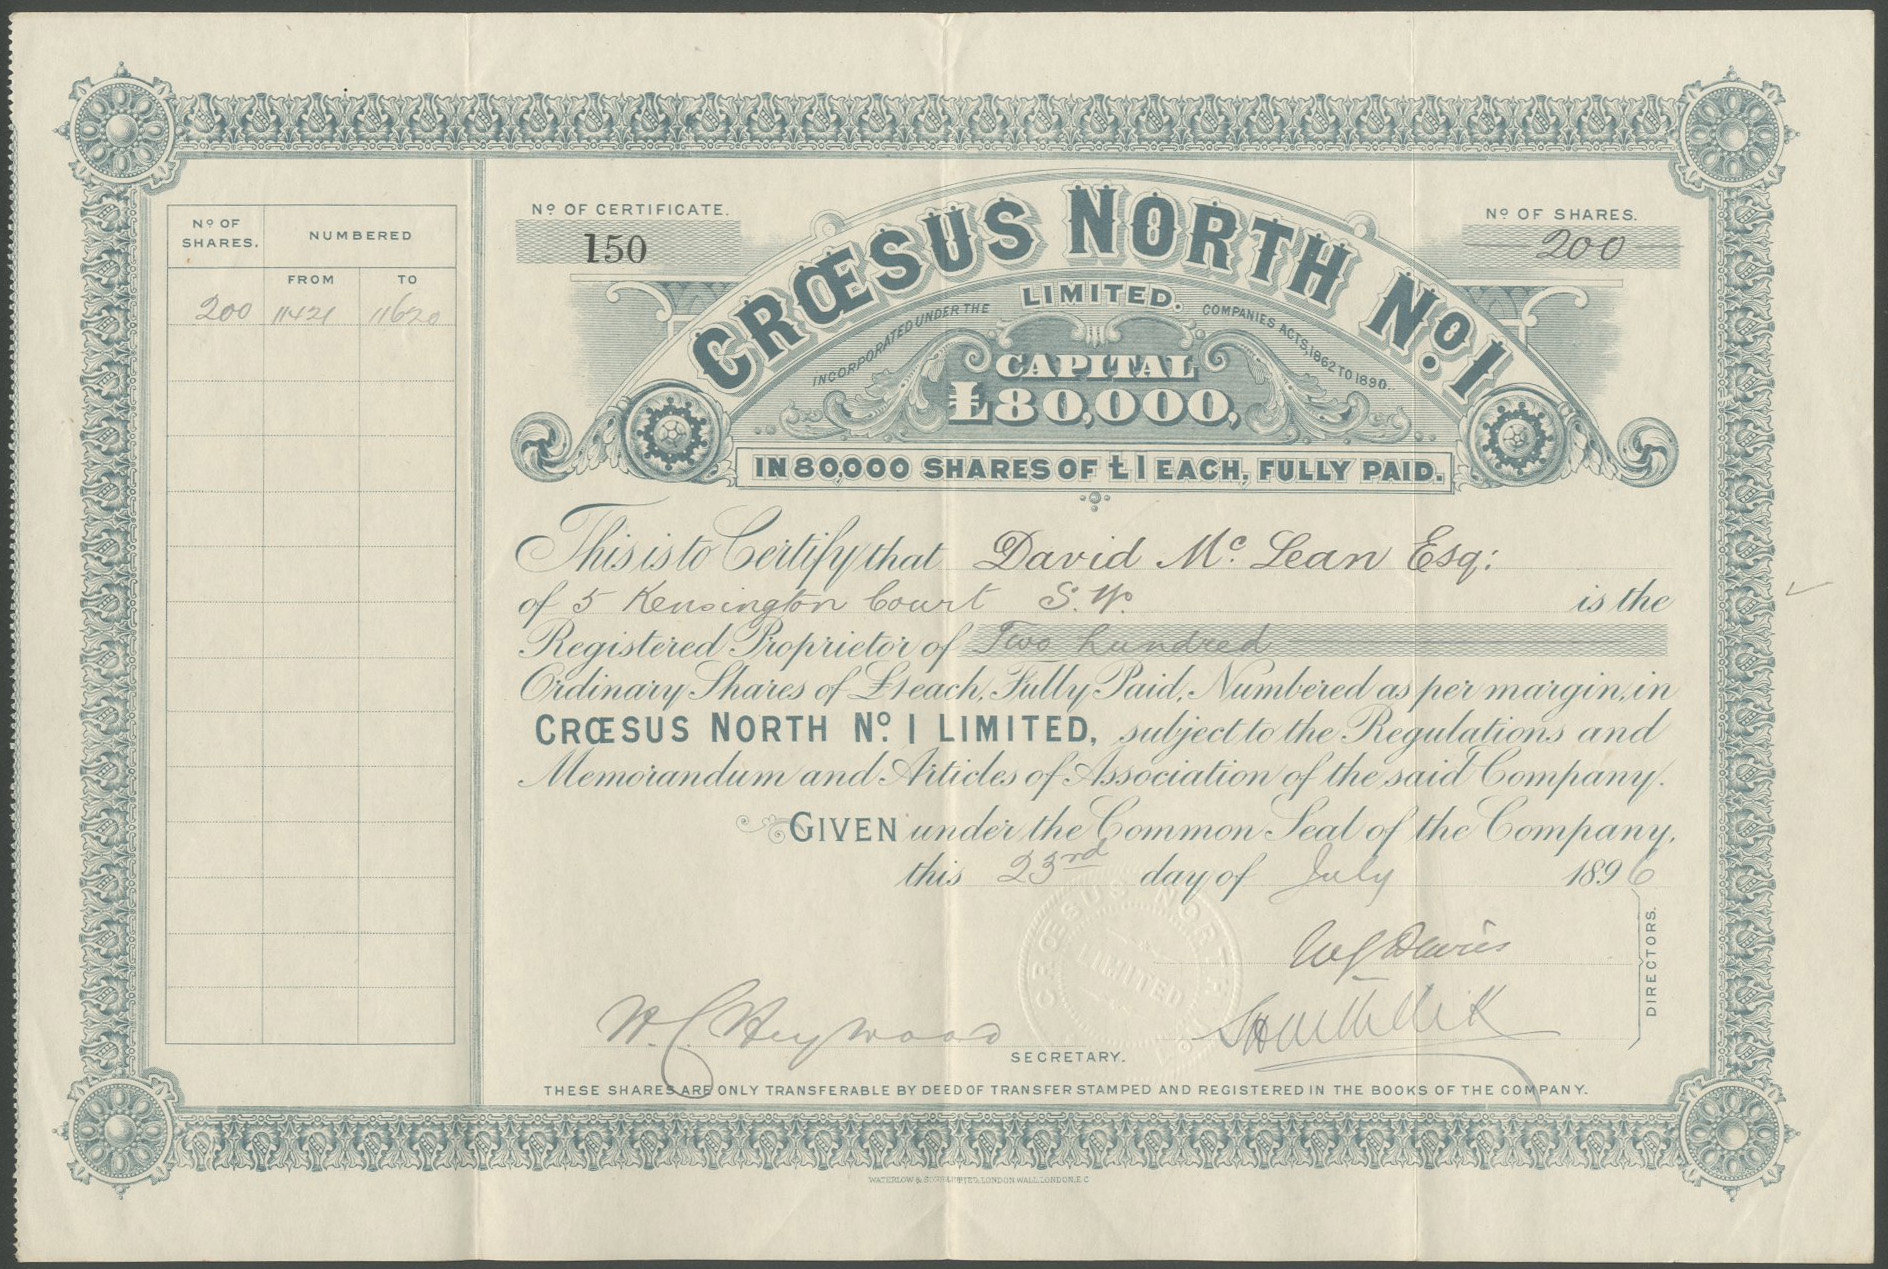 Nº OF CERTIFICATE.
150
Nº OF SHARES.
200
CRŒSUS NORTH Nº. 1
LIMITED.
INCORPORATED UNDER THE COMPANIES ACTS, 1862 TO 1890.
CAPITAL
£80,000,
IN 80,000 SHARES OF £1 EACH, FULLY PAID.
Nº OF SHARES. NUMBERED
FROM TO
200 11421 11620
This is to Certify that David Mc. Lean Esq:
of 5 Kensington Court S.W. is the
Registered Proprietor of Two hundred
Ordinary Shares of £1 each, Fully Paid, Numbered as per margin, in
CRŒSUS NORTH Nº. 1 LIMITED, subject to the Regulations and
Memorandum and Articles of Association of the said Company.
GIVEN under the Common Seal of the Company,
this 23rd day of July 1896
CRŒSUS NORTH Nº 1
LIMITED
Davies
DIRECTORS.
H. C. Heywood
SECRETARY.
THESE SHARES ARE ONLY TRANSFERABLE BY DEED OF TRANSFER STAMPED AND REGISTERED IN THE BOOKS OF THE COMPANY.
WATERLOW & SONS LIMITED, LONDON WALL, LONDON, E.C